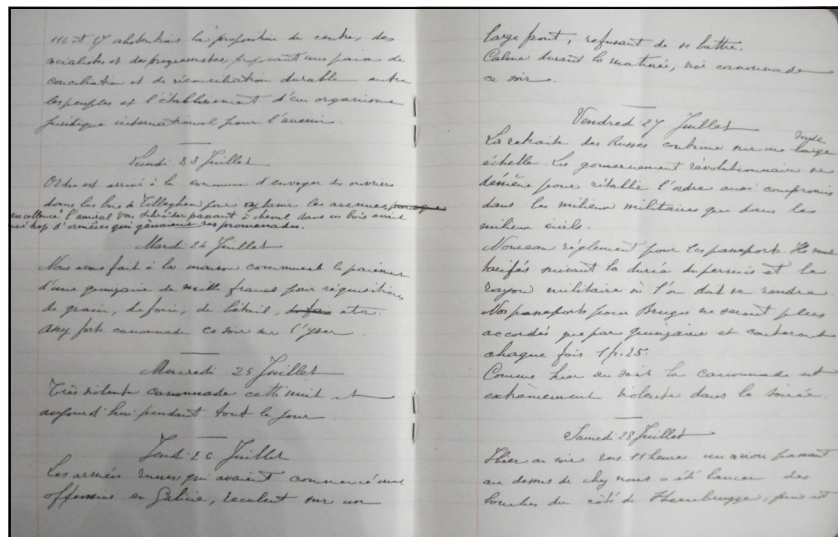 116 et 17 abstentions la proposition du centre, des
socialistes et des progressistes proposant une paix de
conciliation et de réconciliation durable entre
les peuples et l'établissement d'un organisme
juridique international pour l'avenir.
Lundi 23 Juillet
Ordre est arrivé à la commune d'envoyer des ouvriers
dans les bois de Tilleghem pour les avenues,
excellence l'amiral Von Schröder passant à cheval dans ces bois avait
trop d'ornières qui gênaient ses promenades.
Mardi 24 Juillet
Nous avons fait à la maison communale le paiement
d'une quinzaine de mille francs pour réquisitions
de grain, de foin, de bétail, etc.
assez forte canonnade ce soir sur l'Yser.
Mercredi 25 Juillet
Très violente canonnade cette nuit et
aujourd'hui pendant tout le jour.
Jeudi 26 Juillet
Les armées russes qui avaient commencé une
offensive en Galicie, reculent sur un
large front, refusant de se battre.
Calme durant la matinée, canonnade
ce soir.
Vendredi 27 Juillet
La retraite des Russes continue sur une large
échelle. Le gouvernement révolutionnaire se
démène pour rétablir l'ordre aussi compromis
dans les milieux militaires que dans les
milieux civils.
Nouveau règlement pour les passeports. Ils sont
tarifés suivant la durée du permis et le
rayon militaire où l'on doit se rendre.
Nos passeports pour Bruges ne seront plus
accordés que par quinzaine et coûteront
chaque fois 1 fr. 25.
Comme hier au soir la canonnade est
extrêmement violente dans la soirée.
Samedi 28 Juillet
Hier au soir vers 11 heures un avion passant
au dessus de chez nous a été lancer des
bombes du côté de Steenbrugge, puis est